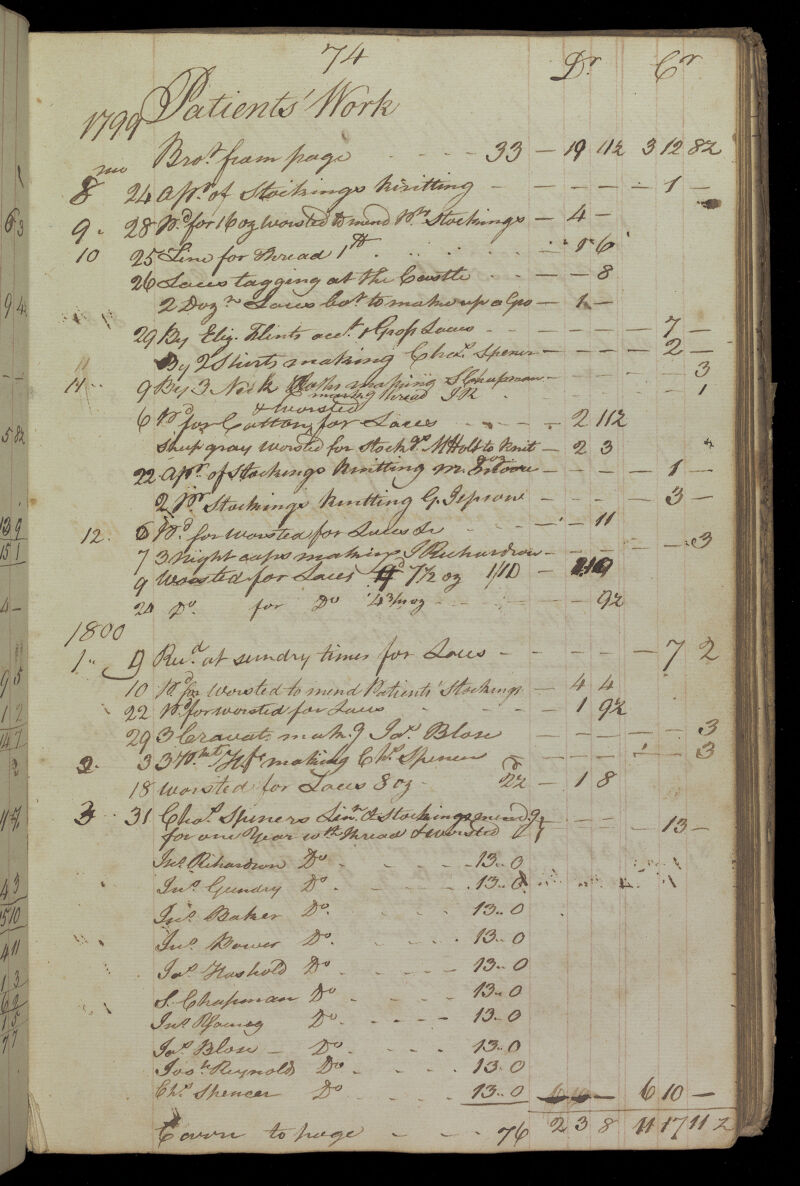 74
Dr Cr
1799 Patients' Work
mo Brot. from page - - - - 33 - 19 11½ 3 12 8½
8 24 A pr. of Stockings knitting - - - - - 1 -
9 28 Pd for 16 oz worsted to mend Pts Stockings - 4 -
10 25 Line for thread 1 lb 1 6
26 Laces tagging at the Castle - - - 8
2 Dozn. Laces bot. to make up a Gro - 1 -
29 By Eliz. Flints acct. 1 Gross Laces - - - - - 7 -
By 2 Shirts making Chas. Spencer - - - - 2 -
11 9 By 3 Neck Cloths making S Chapman - - - - 3
marking thread J R 1
& worsted
6 Pd for Cotton, for Laces - - - - 2 11½
Sheep gray worsted for Stockgs M Holt to knit - 2 3
22 A pr. of Stockings knitting M. - - - - 1 -
2 Pr Stockings knitting G. Jepson - - - - 3 -
12 6 Pd. for worsted for Laces &c - - - 11
7 3 night caps making J Richardson - - - - 3
9 Worsted for Laces 7½ oz 1/10 - 1 10
20 Do. for Do 4 3/4 oz - - - - 9½
1800
1 9 Recd. at sundry times for Laces - - - - - 7 2
10 Pd for worsted to mend Patients' Stockings - 4 4
22 Pd for worsted for Laces - - 1 9½
29 3 Cravats mak.g Jas. Blow - - - - 3
2 3 3 Pkt. Hfs making Chs. Spencer - - - - 3
18 worsted for Laces 8 oz - 2½d - 1 8
3 31 Chas. Spencers Lin.n & Stockings mend.g
for one Year wth. thread & worsted - - - - 13 -
Jno. Richardson Do - - - - 13..0
Jno. Gundry Do. - - - - 13..0
Jno. Baker Do. - - - - 13..0
Jno. Bower Do. - - - - 13..0
Jas. Do. - - - - 13..0
S. Chapman Do - - - - 13..0
Jno. Do. - - - - 13..0
Jas. Blow - Do - - - - 13..0
Josh. Reynold Do - - - 13..0
Chs. Spencer Do - - - - 13..0 6 10 - 6 10 -
Carrd. to page - - - 76 2 3 8 11 17 11½